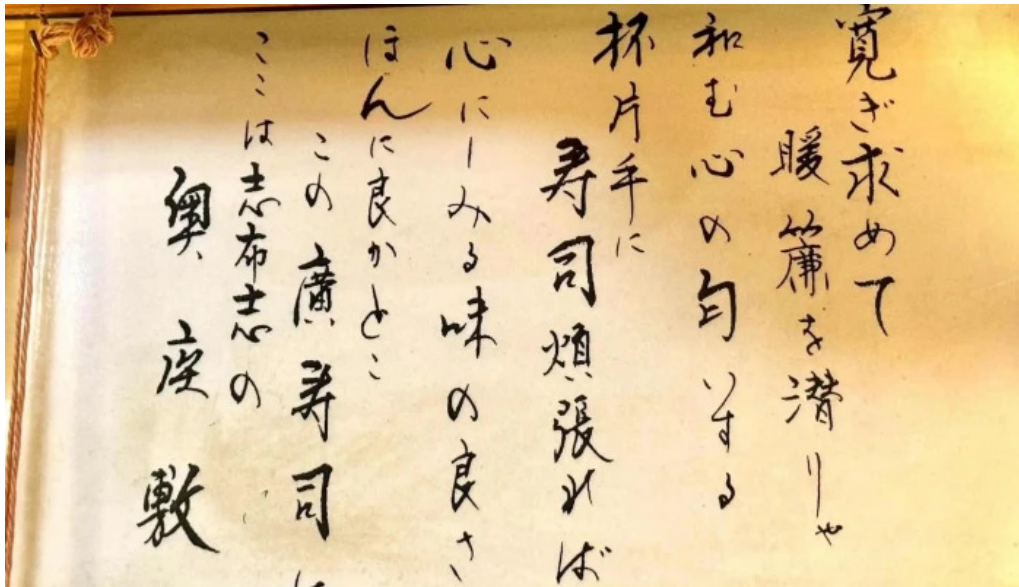 寛ぎ求めて
暖簾を潜りゃ
和む心の匂いする
杯片手に
寿司頬張れば
心にしみる味の良さ
ほんに良かとこ
この廣寿司
ここは志布志の
奥座敷